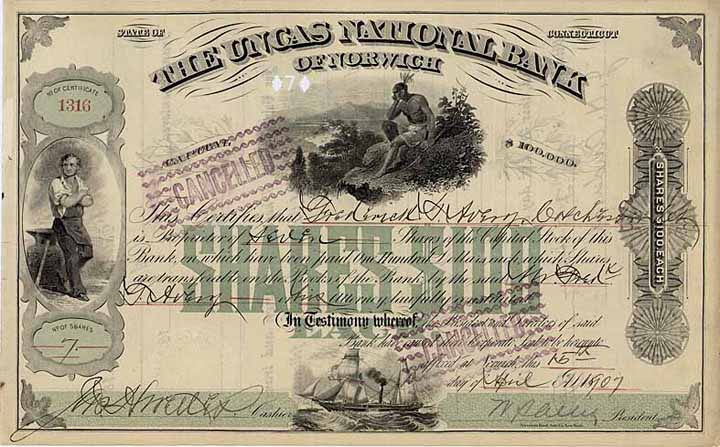 STATE OF CONNECTICUT
THE UNCAS NATIONAL BANK
OF NORWICH
7
No OF CERTIFICATE
1316
CAPITAL, $100,000.
CANCELLED
This Certifies that Frederick T. Avery, Colchester
is Proprietor of Seven Shares of the Capital Stock of this
Bank, on which have been paid One Hundred Dollars each which Shares
are transferable on the Books of the Bank by the said Fred'k
T. Avery his attorney lawfully constituted.
SHARES $100
EACH
SHARES $100 EACH
(In Testimony whereof, the President and of said
Bank have caused their Corporate Seal to be hereunto
affixed at Norwich, this 15th
day of April 1907
CANCELLED
No OF SHARES
7
Cashier. President